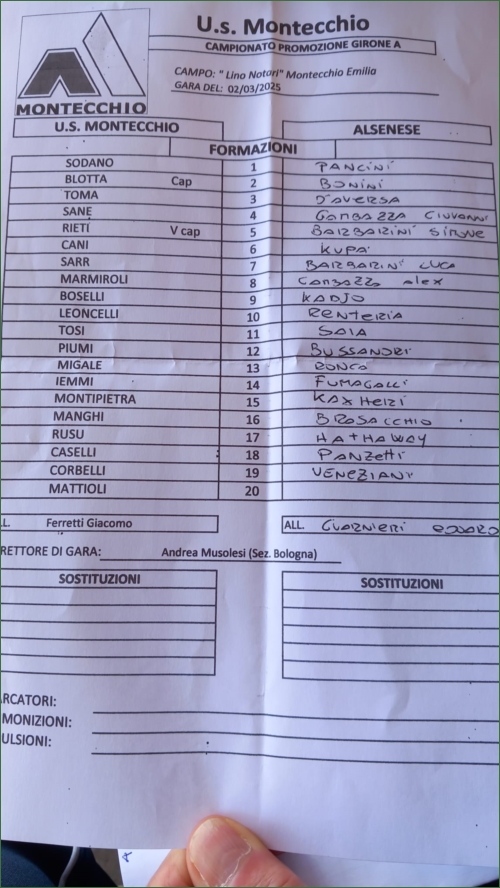 U.s. Montecchio
CAMPIONATO PROMOZIONE GIRONE A
CAMPO: " Lino Notari" Montecchio Emilia
GARA DEL: 02/03/2025
MONTECCHIO
U.S. MONTECCHIO ALSENESE
FORMAZIONI
SODANO 1 PANCINI
BLOTTA Cap 2 BONINI
TOMA 3 D'AVERSA
SANE 4 GOMBAZZA GIOVANNI
RIETI V cap 5 BARBARINI SIMONE
CANI 6 KUPA
SARR 7 BARBARINI LUCA
MARMIROLI 8 alex
BOSELLI 9 KADJO
LEONCELLI 10 RENTERIA
TOSI 11 SAIA
PIUMI 12 BUSSANDRI
MIGALE 13
IEMMI 14 FUMAGALLI
MONTIPIETRA 15
MANGHI 16 BROSACCHIO
RUSU 17 HATHAWAY
CASELLI 18 PANZETTI
CORBELLI 19 VENEZIANI
MATTIOLI 20
L. Ferretti Giacomo ALL. GUARNIERI
RETTORE DI GARA: Andrea Musolesi (Sez. Bologna)
SOSTITUZIONI SOSTITUZIONI
RCATORI:
MONIZIONI:
ULSIONI: